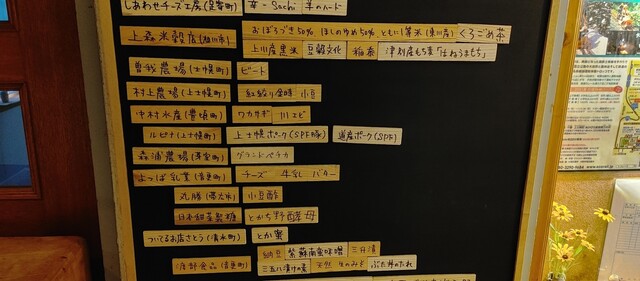 しあわせチーズ工房(足寄町) 幸-Sachi 羊のハート
上森米穀店(旭川市) おぼろづき50% ほしのゆめ50% といい等米(東川産) くろごめ茶
上川産黒米 豆穀文化 稲泰 津別産もち麦「はねうまもち」
曽我農場(士幌町) ビート
村上農場(上士幌町) 紅絞り金時 小豆
中村水産(豊頃町) ワカサギ 川エビ
ルピナ(上士幌町) 上士幌ポーク(SPF豚) 道産ポーク(SPF)
森浦農場(芽室町) グランドペチカ
よつば乳業(音更町) チーズ 牛乳 バター
丸勝(帯広市) 小豆酢
日本甜菜製糖 とかち野酵母
ついてるお店さとう(清水町) とか蜜
納豆 紫蘇南蛮味噌 三升漬
渡部食品(音更町) 三五八漬けの素 天然 生のみそ ぶた丼のたれ